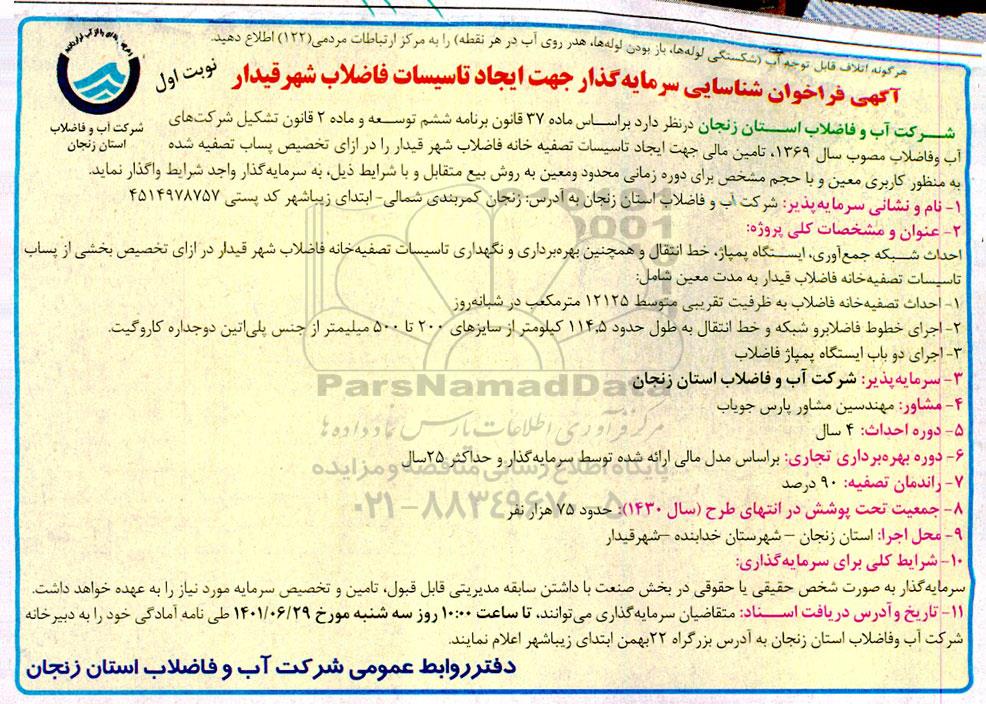 هرگونه اتلاف قابل توجه آب (شکستگی لوله‌ها، باز بودن لوله‌ها، هدر روی آب در هر نقطه) را به مرکز ارتباطات مردمی(۱۲۲) اطلاع دهید.
آگهی فراخوان شناسایی سرمایه‌گذار جهت ایجاد تاسیسات فاضلاب شهر قیدار
نوبت اول
شرکت آب و فاضلاب
استان زنجان
شـــرکت آب و فاضلاب اســـتان زنجان درنظر دارد براســاس ماده ۳۷ قانون برنامه ششم توســعه و ماده ۲ قانون تشکیل شرکت‌های
آب وفاضلاب مصوب سال ۱۳۶۹، تامین مالی جهت ایجاد تاسیسات تصفیه خانه فاضلاب شهر قیدار را در ازای تخصیص پساب تصفیه شده
به منظور کاربری معین و با حجم مشخص برای دوره زمانی محدود ومعین به روش بیع متقابل و با شرایط ذیل، به سرمایه‌گذار واجد شرایط واگذار نماید.
۱- نام و نشانی سرمایه‌پذیر: شرکت آب و فاضلاب استان زنجان به آدرس: زنجان کمربندی شمالی- ابتدای زیباشهر کد پستی ۴۵۱۴۹۷۸۷۵۷
۲- عنوان و مشخصات کلی پروژه:
احداث شــبکه جمع‌آوری، ایســتگاه پمپاژ، خط انتقال و همچنین بهره‌برداری و نگهداری تاسیسات تصفیه‌خانه فاضلاب شهر قیدار در ازای تخصیص بخشی از پساب
تاسیسات تصفیه‌خانه فاضلاب قیدار به مدت معین شامل:
۱- احداث تصفیه‌خانه فاضلاب به ظرفیت تقریبی متوسط ۱۲۱۲۵ مترمکعب در شبانه‌روز
۲- اجرای خطوط فاضلابرو شبکه و خط انتقال به طول حدود ۱۱۴،۵ کیلومتر از سایزهای ۲۰۰ تا ۵۰۰ میلیمتر از جنس پلی‌اتین دوجداره کاروگیت.
۳- اجرای دو باب ایستگاه پمپاژ فاضلاب
۳- سرمایه‌پذیر: شرکت آب و فاضلاب استان زنجان
۴- مشاور: مهندسین مشاور پارس جویاب
۵- دوره احداث: ۴ سال
۶- دوره بهره‌برداری تجاری: براساس مدل مالی ارائه شده توسط سرمایه‌گذار و حداکثر ۲۵سال
۷- راندمان تصفیه: ۹۰ درصد
۸- جمعیت تحت پوشش در انتهای طرح (سال ۱۴۳۰): حدود ۷۵ هزار نفر
۹- محل اجرا: استان زنجان – شهرستان خدابنده –شهرقیدار
۱۰- شرایط کلی برای سرمایه‌گذاری:
سرمایه‌گذار به صورت شخص حقیقی یا حقوقی در بخش صنعت با داشتن سابقه مدیریتی قابل قبول، تامین و تخصیص سرمایه مورد نیاز را به عهده خواهد داشت.
۱۱- تاریخ وآدرس دریافت اســـناد: متقاضیان سرمایه‌گذاری می‌توانند، تا ساعت ۱۰:۰۰ روز سه شنبه مورخ ۱۴۰۱/۰۶/۲۹ طی نامه آمادگی خود را به دبیرخانه
شرکت آب وفاضلاب استان زنجان به آدرس بزرگراه ۲۲بهمن ابتدای زیباشهر اعلام نمایند.
دفتر روابط عمومی شرکت آب و فاضلاب استان زنجان
ParsNamadData
مرکز فرآوری اطلاعات پارس نماد داده ها
پایگاه اطلاع رسانی مناقصه و مزایده
۰۲۱-۸۸۳۴۹۶۷۰-۵